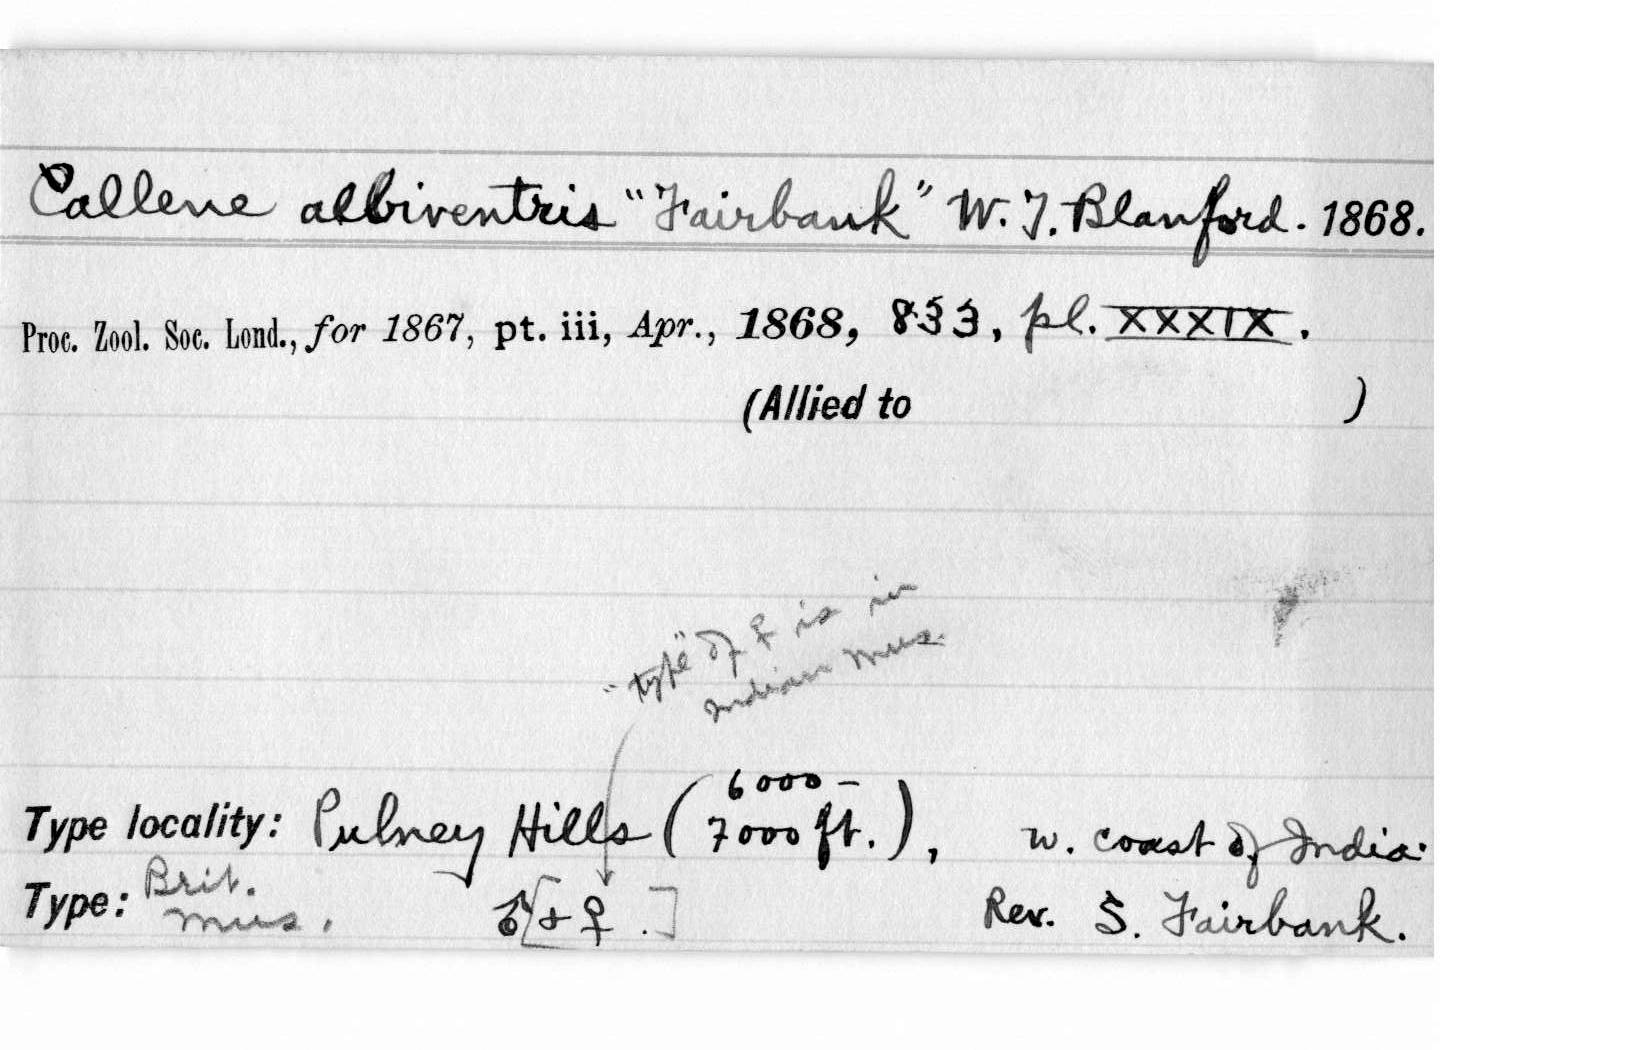 Callene albiventris "Fairbank" W. T. Blanford. 1868.
Proc. Zool. Soc. Lond., for 1867, pt. iii, Apr., 1868, 833, pl. XXXIX.
(Allied to )
"type" of ♀ is in
Indian Mus.
Type locality: Pulney Hills (6000–
7000 ft.), W. coast of India.
Type: Brit.
Mus. ♂ [+ ♀.] Rev. S. Fairbank.